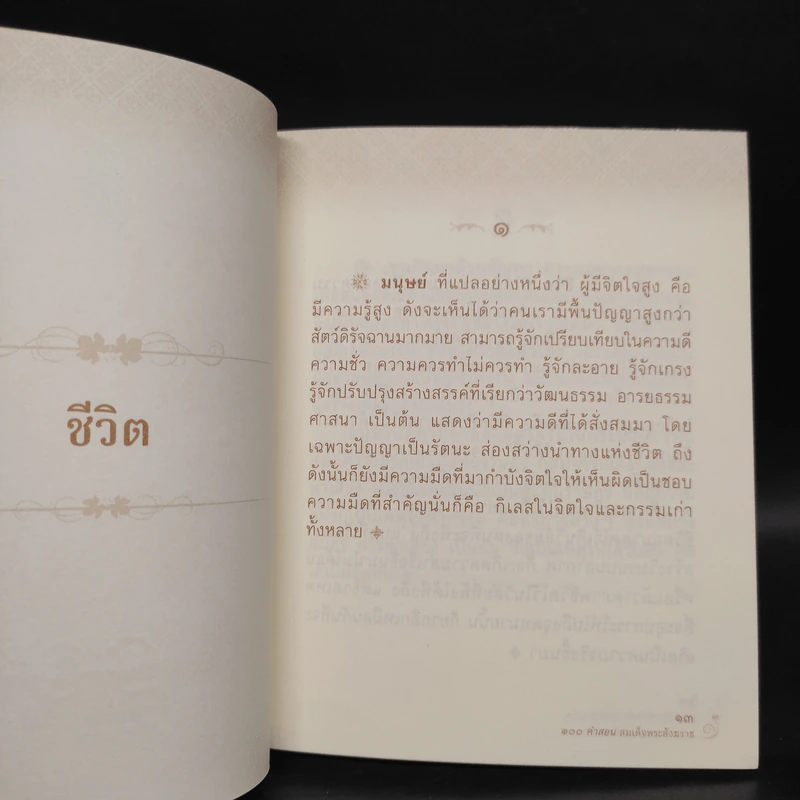 ชีวิต
๑
มนุษย์ ที่แปลอย่างหนึ่งว่า ผู้มีจิตใจสูง คือ
มีความรู้สูง ดังจะเห็นได้ว่าคนเรามีพื้นปัญญาสูงกว่า
สัตว์ดิรัจฉานมากมาย สามารถรู้จักเปรียบเทียบในความดี
ความชั่ว ความควรทำไม่ควรทำ รู้จักละอาย รู้จักเกรง
รู้จักปรับปรุงสร้างสรรค์ที่เรียกว่าวัฒนธรรม อารยธรรม
ศาสนา เป็นต้น แสดงว่ามีความดีที่ได้สั่งสมมา โดย
เฉพาะปัญญาเป็นรัตนะ ส่องสว่างนำทางแห่งชีวิต ถึง
ดังนั้นก็ยังมีความมืดที่มากำบังจิตใจให้เห็นผิดเป็นชอบ
ความมืดที่สำคัญนั่นก็คือ กิเลสในจิตใจและกรรมเก่า
ทั้งหลาย
๑๓
๑๐๐ คำสอน สมเด็จพระสังฆราช